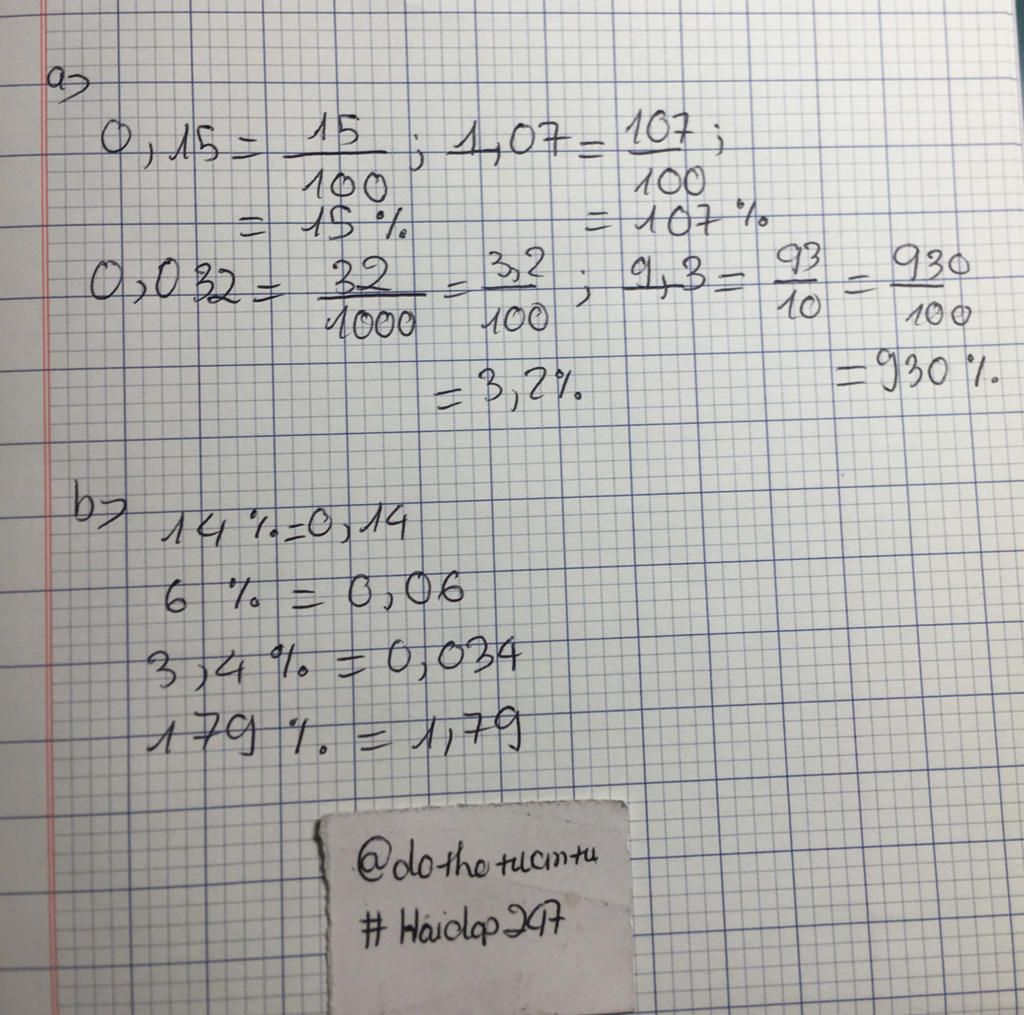 a>
0,15 = 15/100 ; 1,07 = 107/100 ;
= 15 % = 107 %
0,032 = 32/1000 = 3,2/100 ; 9,3 = 93/10 = 930/100
= 3,2 % = 930 %
b>
14 % = 0,14
6 % = 0,06
3,4 % = 0,034
179 % = 1,79
# Hoidap247